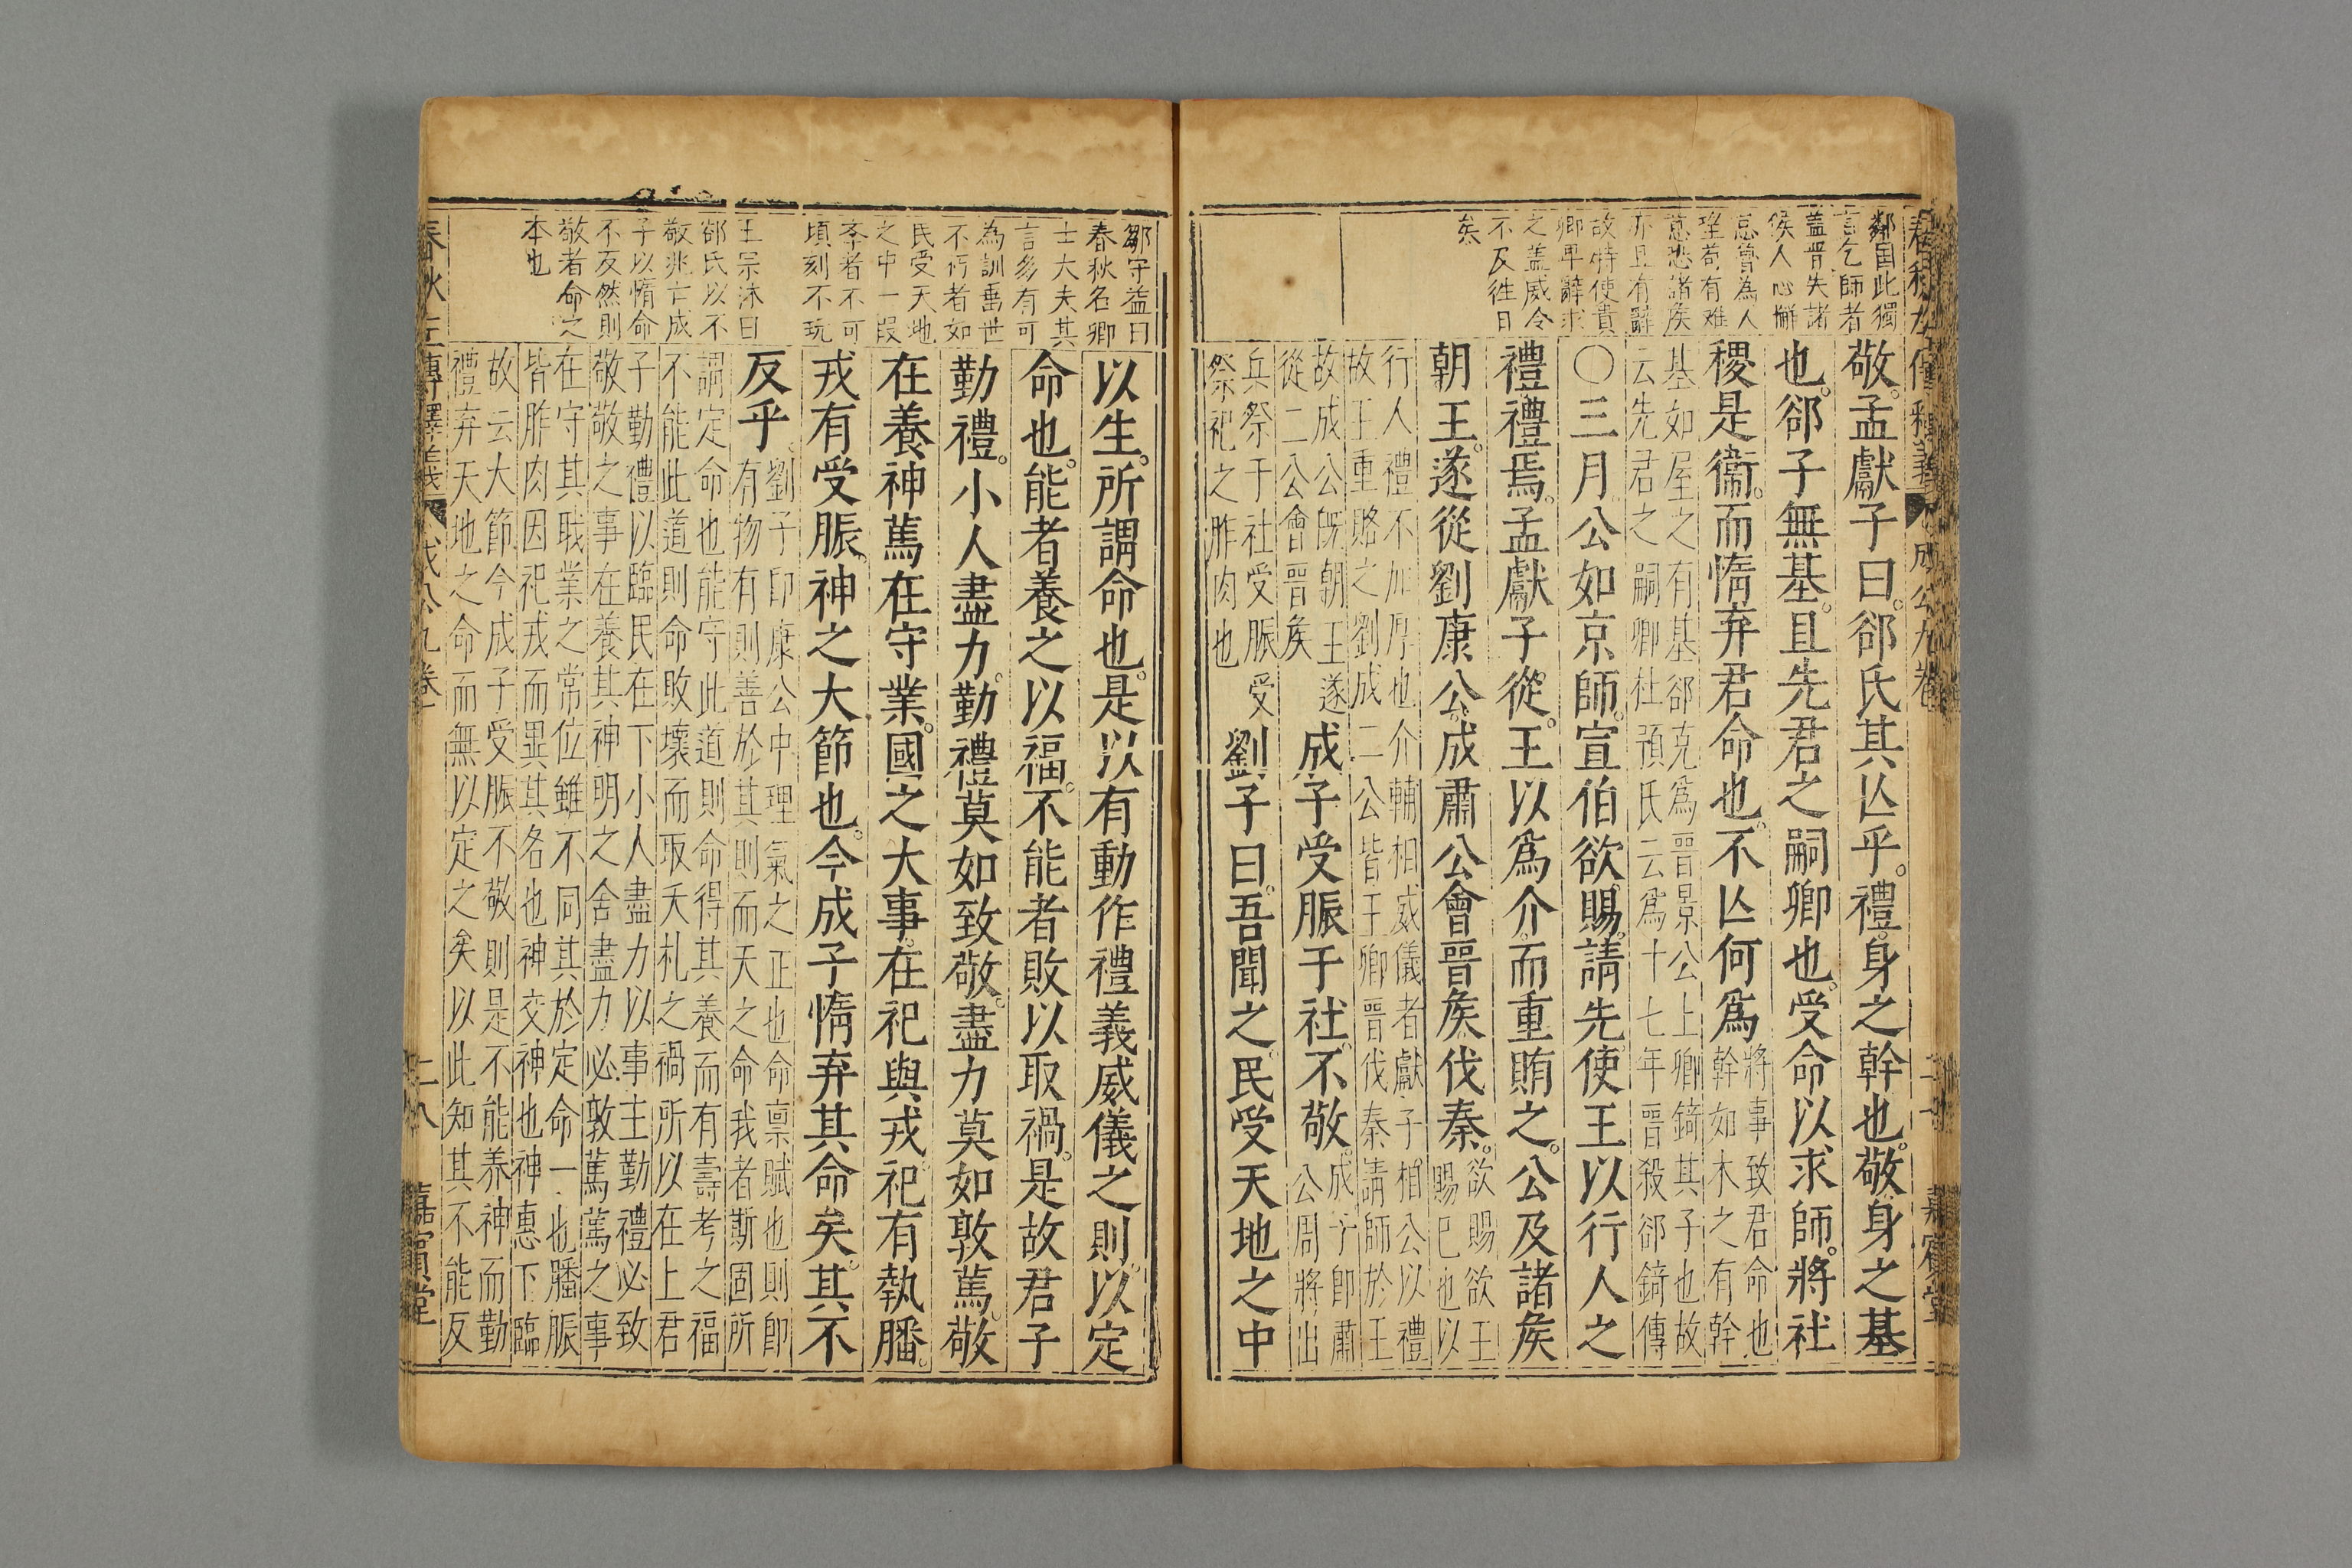 春秋左傳釋義 成公九卷 嘉賓堂
鄰国此獨
言乞師者
蓋晋失諸
侯人心懈
怠魯為人
望苟有难
意恐諸矦
亦且有辭
故特使貴
卿卑辭求
之盖威令
不及徃日
矣
敬。孟獻子曰。郤氏其亾乎。禮。身之幹也。敬。身之基
也。郤子無基。且先君之嗣卿也。受命以求師。將社
稷是衞。而惰弃君命也。不亾何爲
將事致君命也
幹如木之有幹
基如屋之有基郤克爲晋景公上卿錡其子也故
云先君之嗣卿杜預氏云爲十七年晋殺郤錡傳
〇三月公如京師。宣伯欲賜。請先使。王以行人之
禮禮焉。孟獻子從。王以爲介。而重賄之。公及諸矦
朝王。遂從劉康公。成肅公會晋矦伐秦。
欲賜欲王
賜巳也以
行人禮不加厚也介輔相威儀者獻子相公以禮
故王重賂之劉成二公皆王卿晋伐秦請師於王
故成公旣朝王遂
從二公會晋矦
成子受脤于社。不敬。
成子卽肅
公周將出
兵祭于社受脤受
祭祀之胙肉也
劉子曰。吾聞之。民受天地之中
鄒守益曰
春秋名卿
士大夫其
言多有可
為訓垂世
不朽者如
民受天地
之中一段
李者不可
頃刻不玩
王宗沐曰
郤氏以不
敬兆亡成
子以惰命
不反然則
敬者命之
本也
以生。所謂命也。是以有動作禮義威儀之則。以定
命也。能者養之以福。不能者敗以取禍。是故君子
勤禮。小人盡力。勤禮莫如致敬。盡力莫如敦篤。敬
在養神。篤在守業。國之大事。在祀與戎。祀有執膰。
戎有受脤。神之大節也。今成子惰弃其命矣。其不
反乎。
劉子卽康公中理氣之正也命禀賦也則卽
有物有則善於其則而天之命我者斯固所
謂定命也能守此道則命得其養而有壽考之福
不能此道則命敗壞而取夭札之禍所以在上君
子勤禮以臨民在下小人盡力以事主勤禮必致
敬敬之事在養其神明之舍盡力必敦篤篤之事
在守其職業之常位雖不同其於定命一也膰脤
皆胙肉因祀戎而異其各也神交神也神惠下臨
故云大節今成子受脤不敬則是不能养神而勤
禮弃天地之命而無以定之矣以此知其不能反
春秋左傳釋義 成公九卷 二八 嘉賓堂